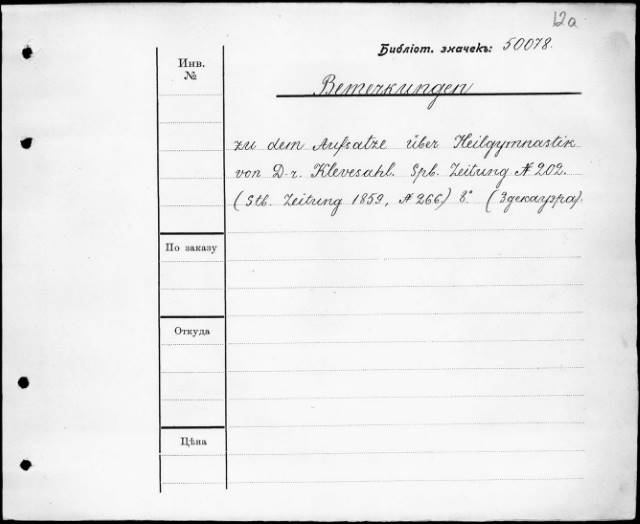 12a
Библіот. значекъ: 50078.
Инв.
№
Bemerkungen
zu dem Aufsatze über Heilgymnastik
von D-r. Klevesahl. Spb. Zeitung № 202.
(Stb. Zeitung 1859, № 266) 8° (Здекауэра).
По заказу
Откуда
Цѣна